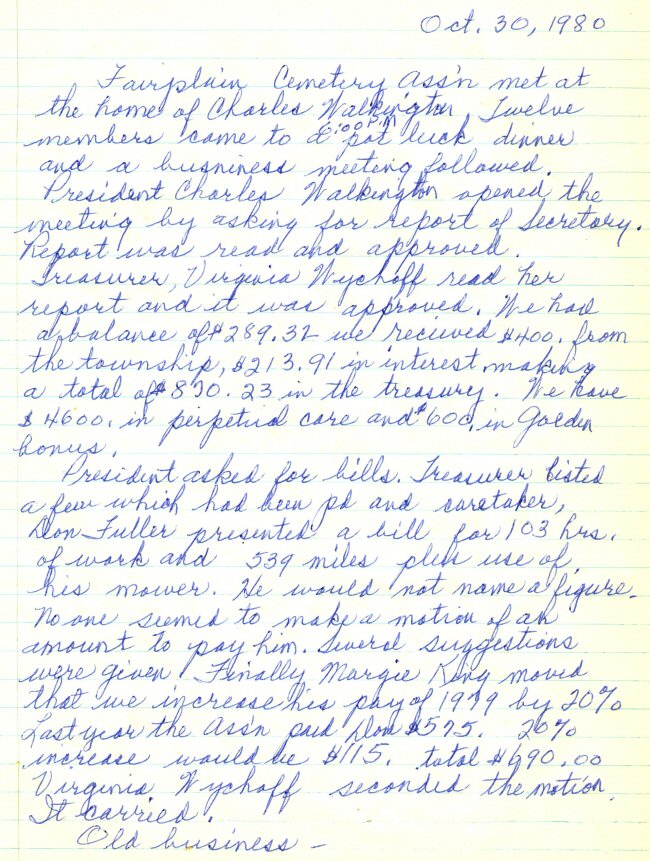 Oct. 30, 1980
Fairplain Cemetery Ass'n met at
the home of Charles Walkington, Twelve
members came to a 6:00 P.M. pot luck dinner
and a busniness meeting followed.
President Charles Walkington opened the
meeting by asking for report of Secretary.
Report was read and approved.
Treasurer, Virginia Wychoff read her
report and it was approved. We had
a balance of $289.32 we recieved $400. from
the township, $213.91 in interest making
a total of $870.23 in the treasury. We have
$4600. in perpetual care and $600. in Golden
bonus.
President asked for bills. Treasurer listed
a few which had been pd and caretaker,
Don Fuller presented a bill for 103 hrs.
of work and 539 miles plus use of
his mower. He would not name a figure.
No one seemed to make a motion of an
amount to pay him. Several suggestions
were given. Finally Margie King moved
that we increase his pay of 1979 by 20%
Last year the Ass'n paid Don $575. 20%
increase would be $115. total $690.00
Virginia Wychoff seconded the motion.
It carried.
Old business -